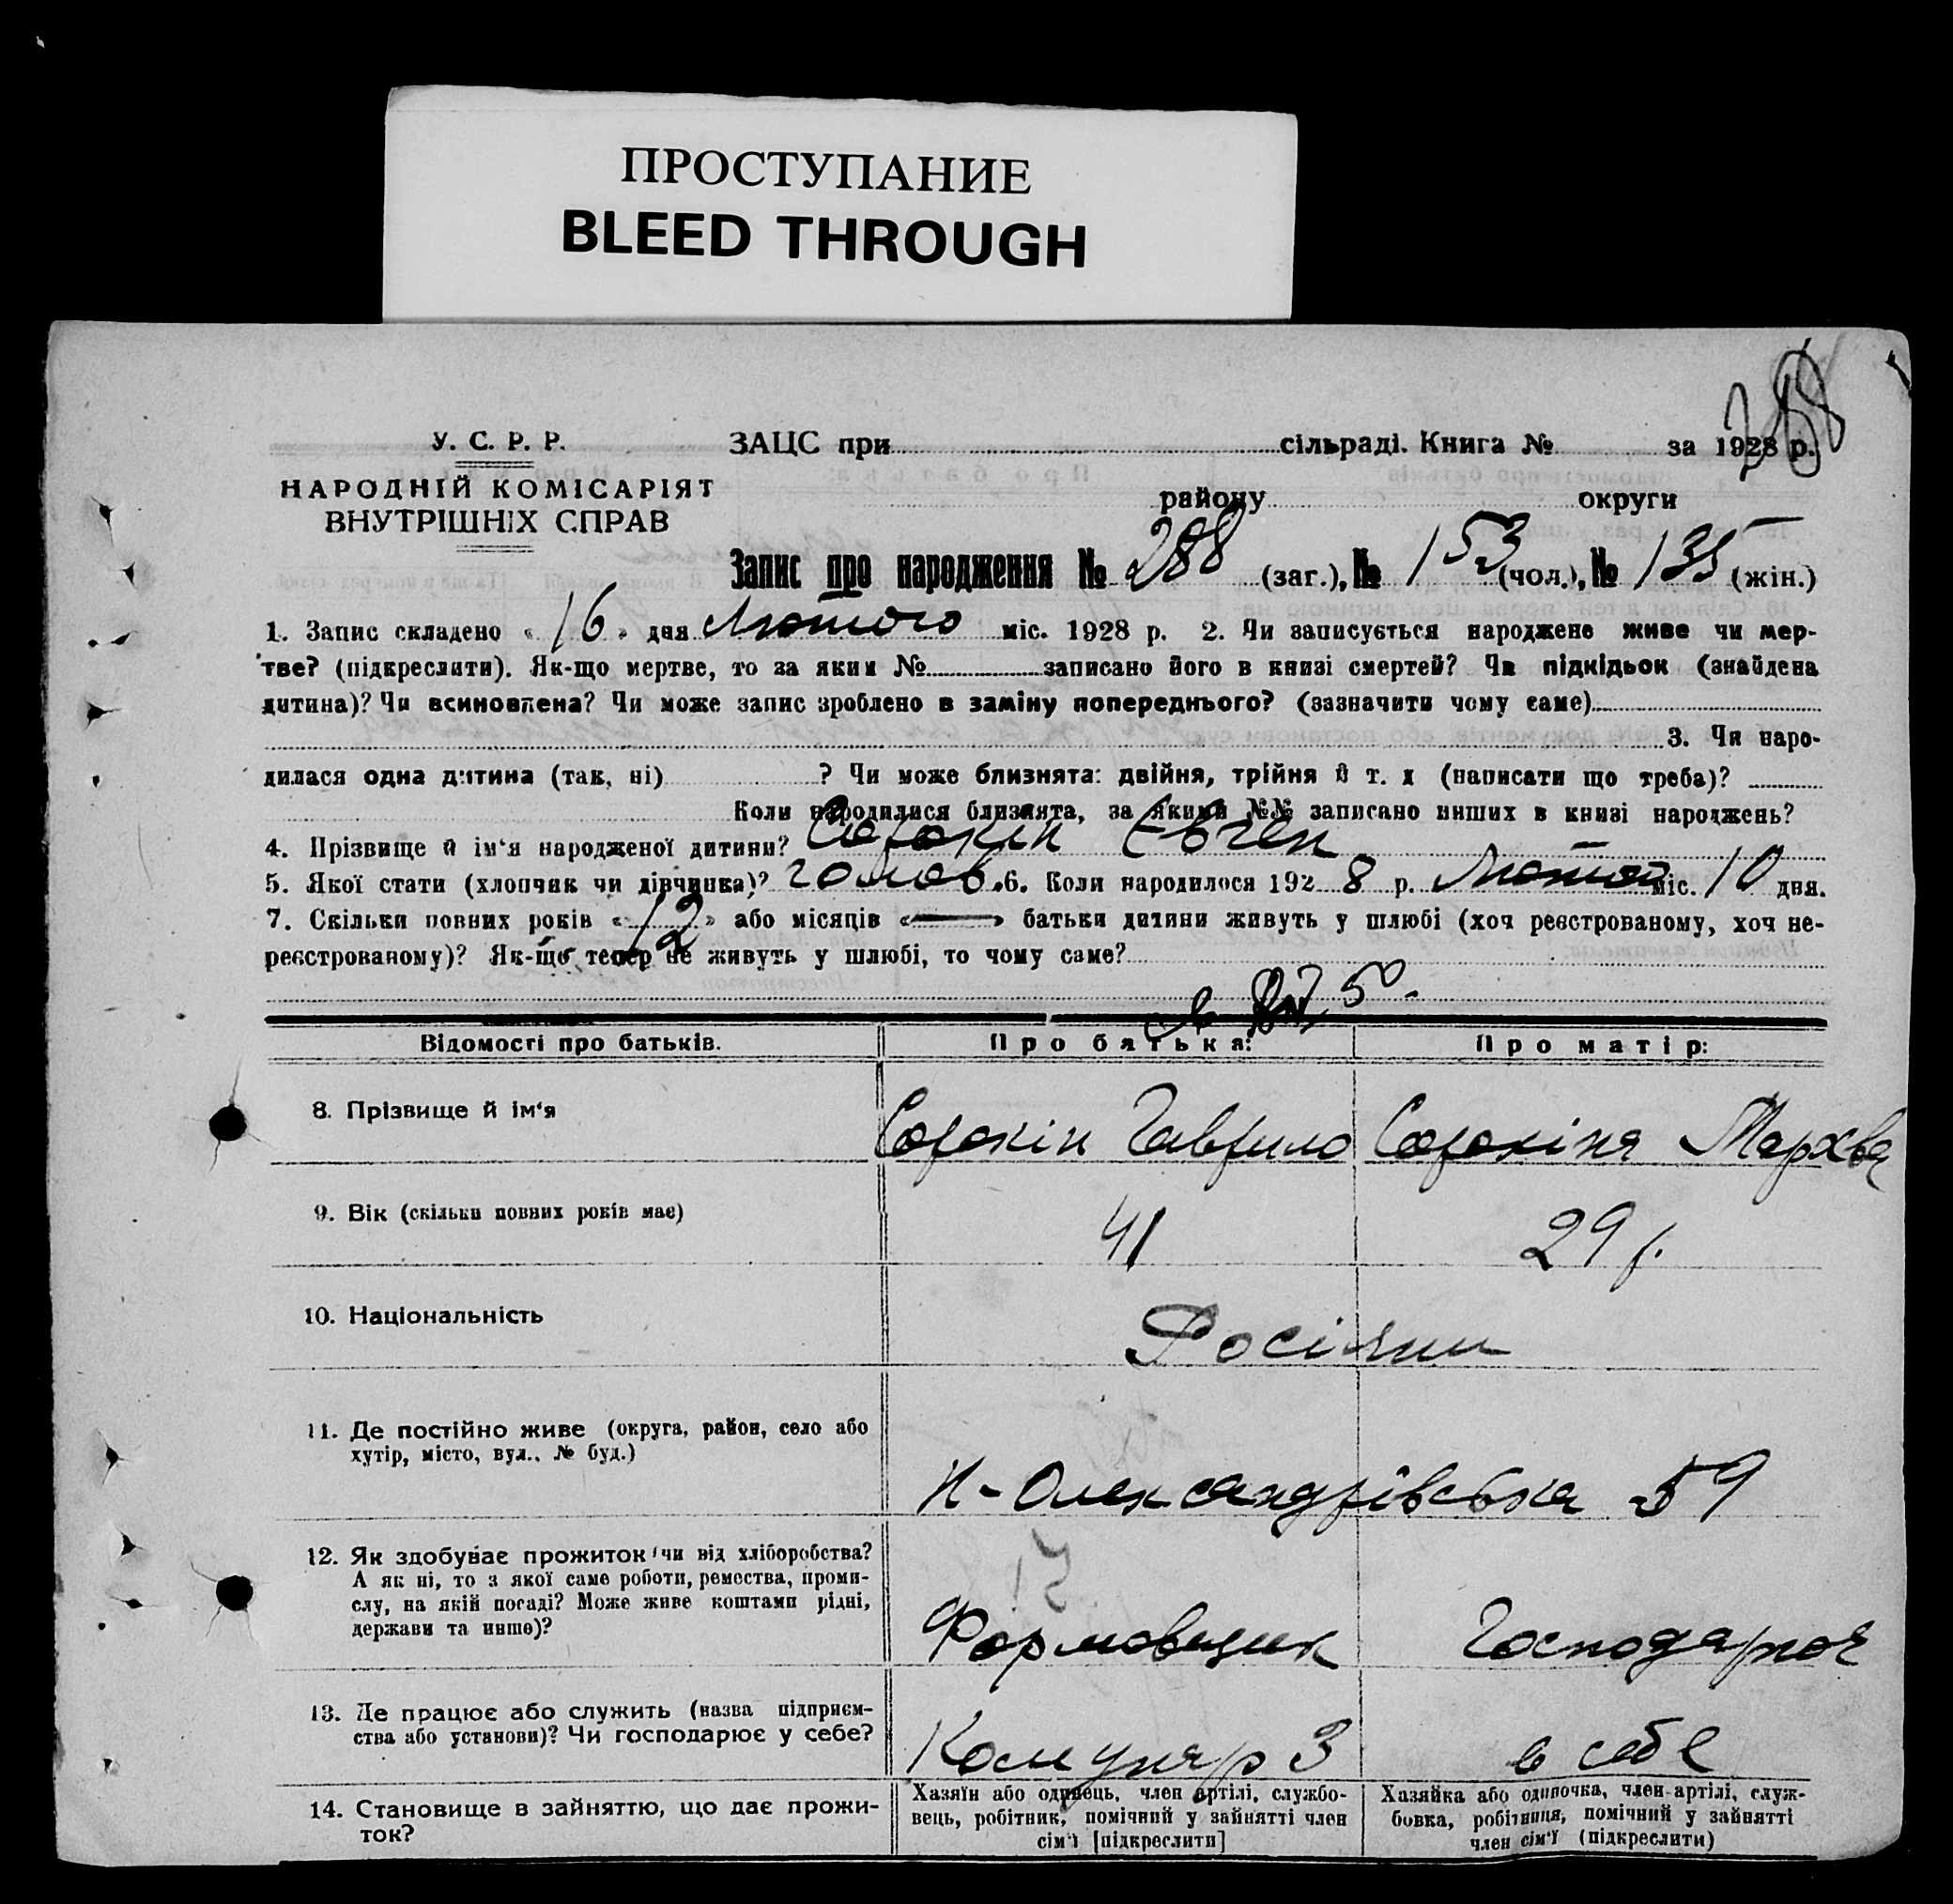 ПРОСТУПАНИЕ
BLEED THROUGH
288
У. С. Р. Р.
НАРОДНІЙ КОМІСАРІЯТ
ВНУТРІШНІХ СПРАВ
ЗАЦС при сільраді. Книга № за 1928 р.
району округи
Запис про народження № 288 (заг.), № 153 (чол.), № 135 (жін.)
1. Запис складено « 16 » дня Лютого міс. 1928 р. 2. Чи записується народжене живе чи мер-
тве? (підкреслити). Як-що мертве, то за яким № записано його в книзі смертей? Чи підкідьок (знайдена
дитина)? Чи всиновлена? Чи може запис зроблено в заміну попереднього? (зазначити чому саме)
3. Чи наро-
дилася одна дитина (так, ні) ? Чи може близнята: двійня, трійня й т. д (написати що треба)?
Коли народилися близнята, за якими №№ записано инших в книзі народжень?
4. Прізвище й ім'я народженої дитини? Сорокін Євген
5. Якої стати (хлопчик чи дівчинка)? чолов. 6. Коли народилося 1928 р. Лютого міс. 10 дня.
7. Скільки повних років « 12 » або місяців « — » батьки дитини живуть у шлюбі (хоч реєстрованому, хоч не-
реєстрованому)? Як-що тепер не живуть у шлюбі, то чому саме?
50
Відомості про батьків. Про батька: Про матір:
8. Прізвище й ім'я Сорокін Гаврило Сорокіна Мархва
9. Вік (скільки повних років має) 41 29 р.
10. Національність Росіяни
11. Де постійно живе (округа, район, село або
хутір, місто, вул., № буд.)
Н-Олександрівська 59
12. Як здобуває прожиток (чи від хліборобства?
А як ні, то з якої саме роботи, ремества, проми-
слу, на якій посаді? Може живе коштами рідні,
держави та инше)?
17
Формовщик Господарює
13. Де працює або служить (назва підприєм-
ства або установи)? Чи господарює у себе?
Комунар З в себе
14. Становище в зайняттю, що дає прожи-
ток?
Хазяїн або одинець, член артілі, службо-
вець, робітник, помічний у зайнятті член
сім'ї [підкреслити]
Хазяйка або одиночка, член артілі, служ-
бовка, робітниця, помічний у зайнятті
член сім'ї (підкреслити)